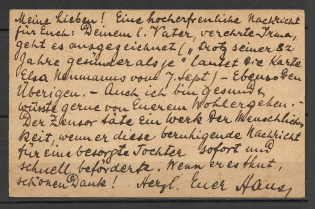 Meine Lieben! Eine hocherfreuliche Nachricht
für Euch! Deinem l. Vater, verehrte Irma,
geht es ausgezeichnet („trotz seiner 82
Jahre gesünder als je" lautet die Karte
Elsa Neumanns vom 7. Sept.) – Ebenso den
Übrigen. – Auch ich bin gesund,
wüsste gerne von Euerem Wohlergehen. –
Der Zensor täte ein Werk der Menschlich-
keit, wenn er diese beruhigende Nachricht
für eine besorgte Tochter sofort und
schnell beförderte. Wenn er es thut,
schönen Dank! Herzl. Euer Hans